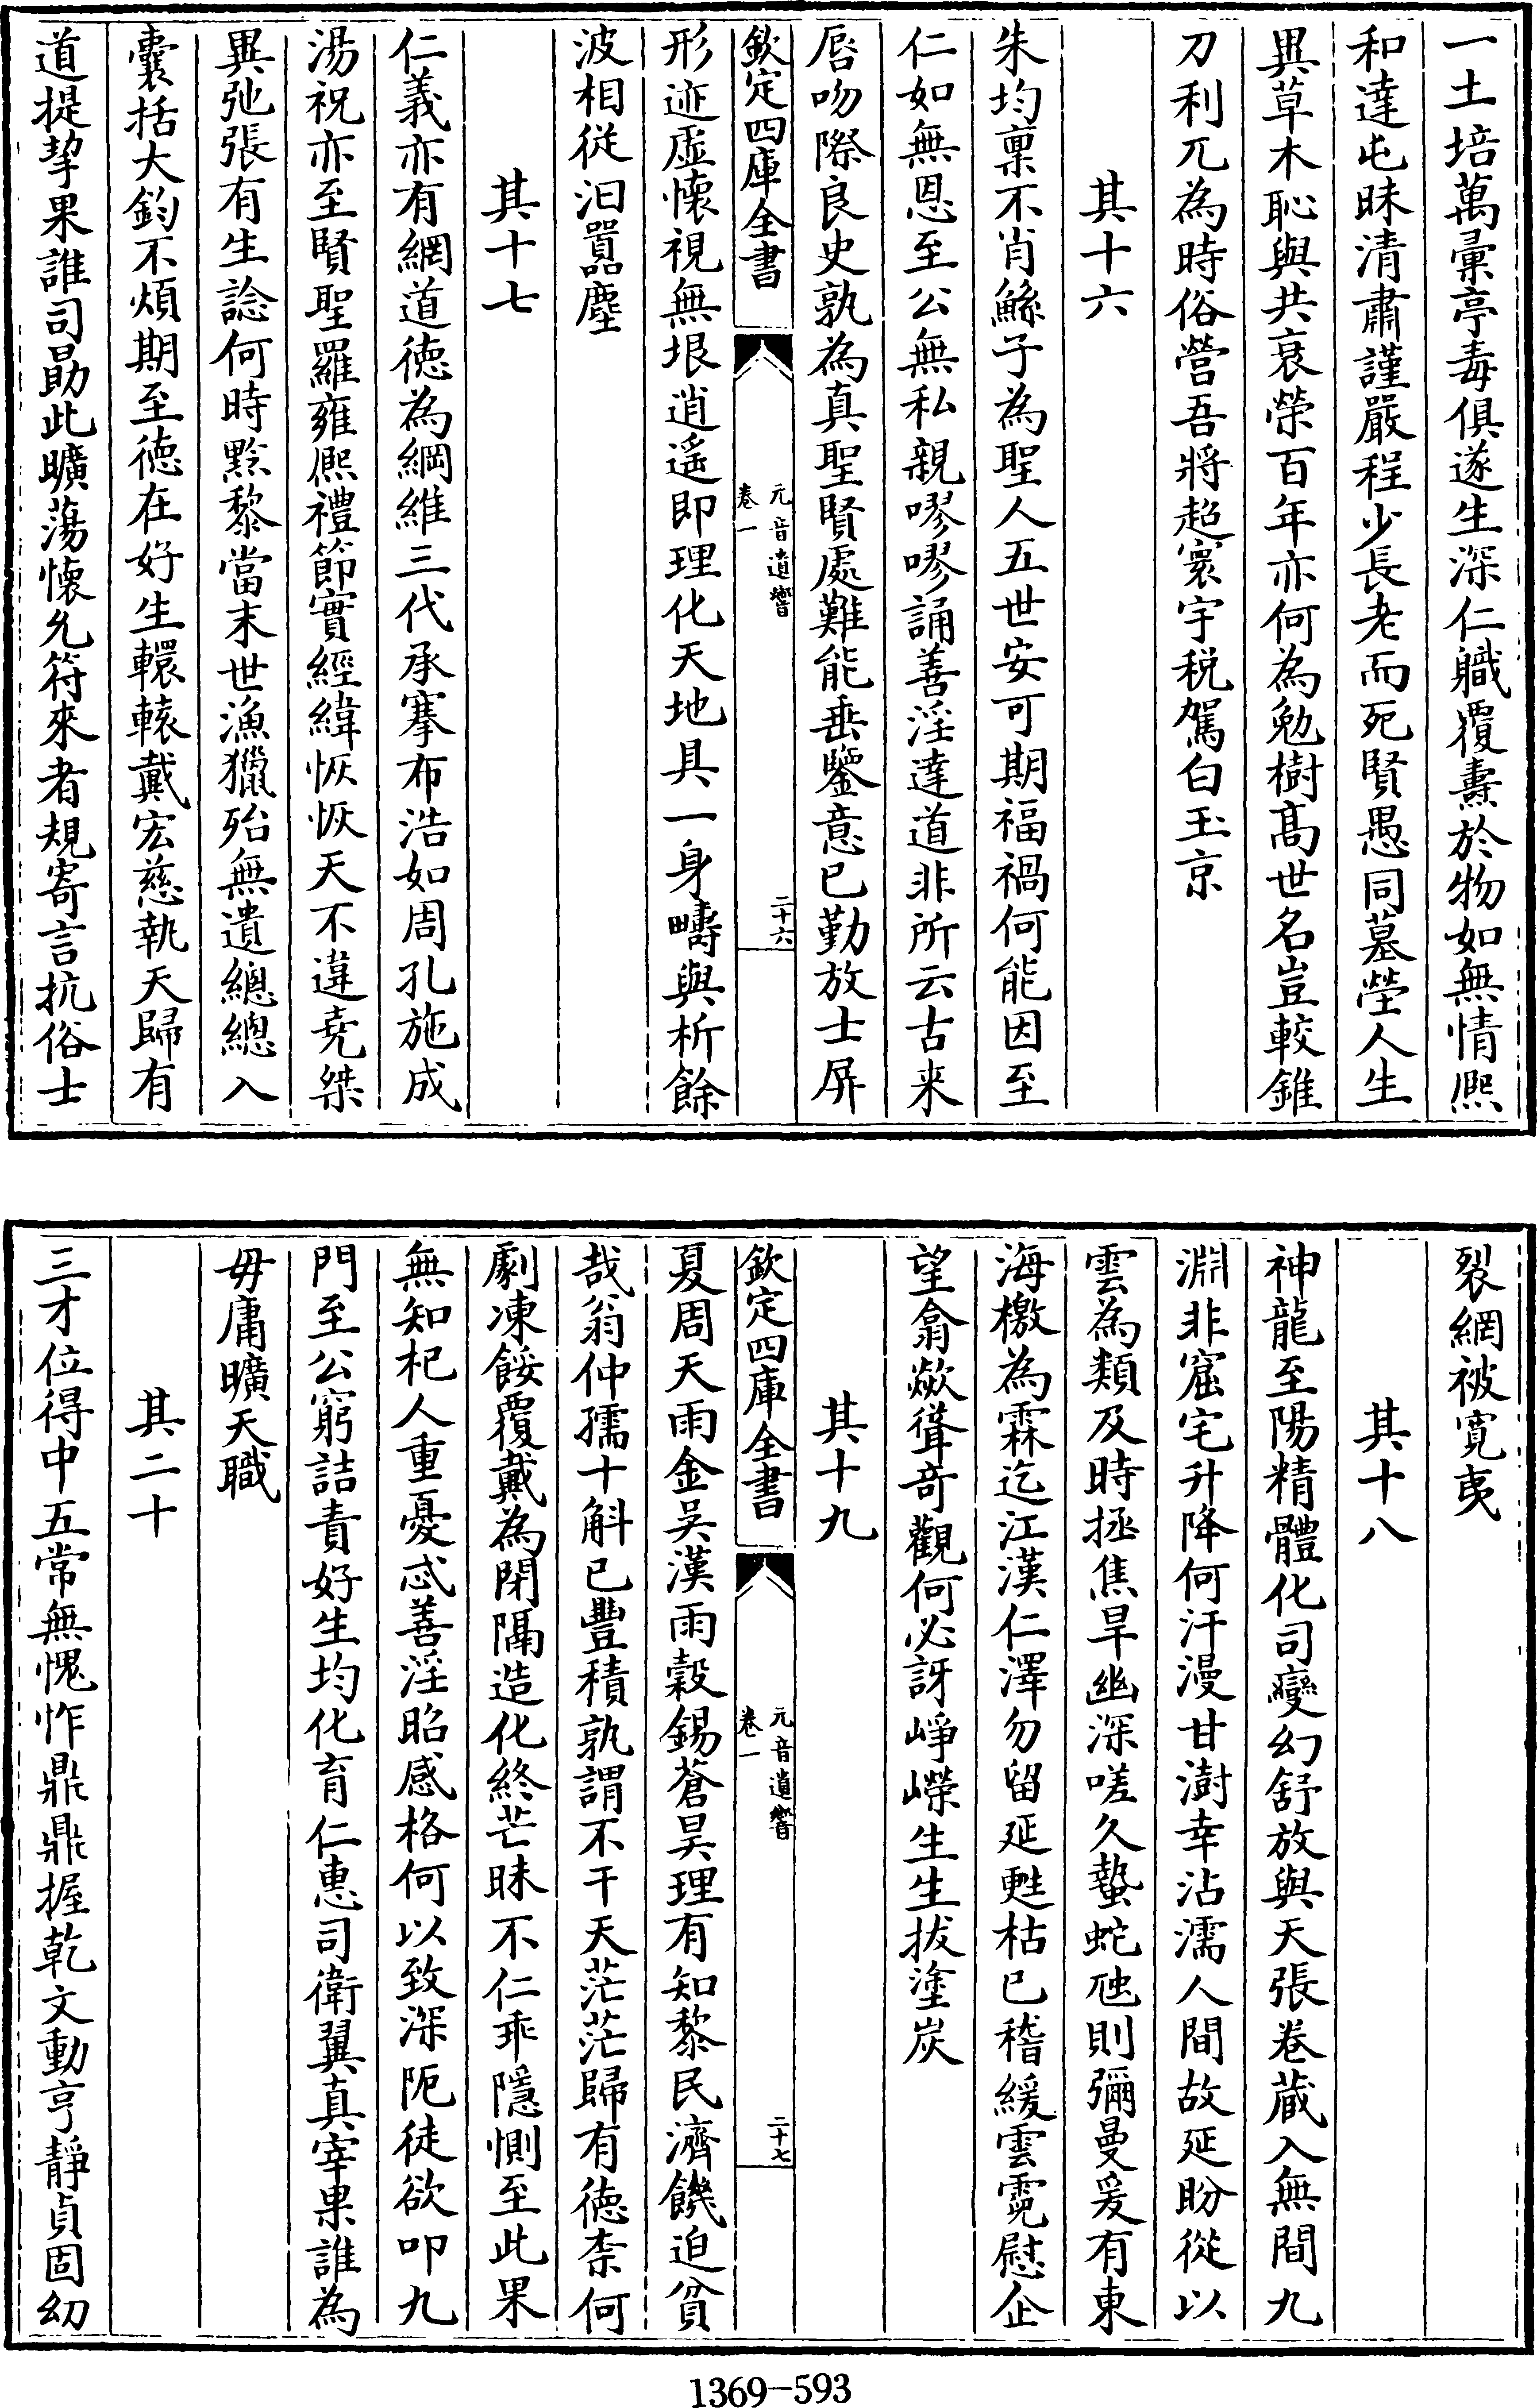 一土培萬彚亭毒俱遂生深仁職覆燾於物如無情熈
和達屯昧清肅謹嚴程少長老而死賢愚同墓塋人生
異草木恥與共衰榮百年亦何為勉樹髙世名豈較錐
刀利兀為時俗營吾將超寰宇税駕白玉京
其十六
朱均稟不肖鯀子為聖人五世安可期福禍何能因至
仁如無恩至公無私親嘐嘐誦善淫達道非所云古来
唇吻際良史孰為真聖賢處難能垂鑒意已勤放士屏
欽定四庫全書
元音遺響
卷一
二十六
形迹虛懷視無垠逍遥即理化天地具一身疇與析餘
波相從汩囂塵
其十七
仁義亦有網道徳為綱維三代承搴布浩如周孔施成
湯祝亦至賢聖羅雍熈禮節實經緯恢恢天不違堯桀
異弛張有生諗何時黔黎當末世漁獵殆無遺總總入
囊括大鈞不煩期至徳在好生轘轅戴宏慈執天歸有
道提挈果誰司勗此曠蕩懐允符來者規寄言抗俗士
裂網被寛夷
其十八
神龍至陽精體化司變幻舒放與天張卷蔵入無間九
淵非窟宅升降何汗漫甘澍幸沾濡人間故延盼從以
雲為類及時拯焦旱幽深嗟久蟄蛇虺則彌曼爰有東
海檄為霖迄江漢仁澤勿留延甦枯已稽緩雲霓慰企
望翕歘聳奇觀何必訝崢嶸生生拔塗炭
其十九
欽定四庫全書
元音遺響
卷一
二十七
夏周天雨金吳漢雨穀錫蒼昊理有知黎民濟饑迫貧
哉翁仲孺十斛已豐積孰謂不干天茫茫歸有徳柰何
劇凍餒覆戴為閉隔造化終芒昧不仁乖隱惻至此果
無知杞人重憂忒善淫昭感格何以致深阨徒欲叩九
門至公窮詰責好生均化育仁惠司衛翼真宰果誰為
毋庸曠天職
其二十
三才位得中五常無愧怍鼎鼎握乾文動亨靜貞固幼
1369-593